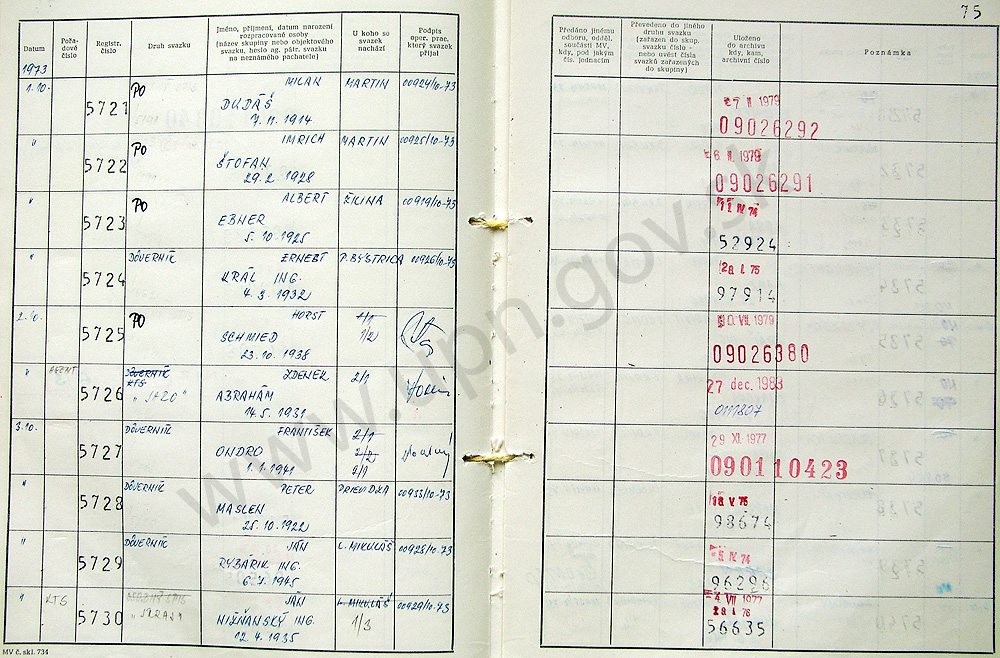 75
Datum
Pořadové číslo
Registr. číslo
Druh svazku
Jméno, příjmení, datum narození
rozpracované osoby
(název skupiny nebo objektového
svazku, heslo ag. pátr. svazku
na neznámého pachatele)
U koho se
svazek
nachází
Podpis
oper. prac.
který svazek
přijal
Předáno jinému
odboru, odděl.
součásti MV,
kdy, pod jakým
čís. jednacím
Převedeno do jiného
druhu svazku
(zařazen do skup.
svazku číslo -
nebo uvést čísla
svazků zařazených
do skupiny)
Uloženo
do archivu
kdy, kam,
archivní číslo
Poznámka
1973
1.10. 5721 PO MILAN MARTIN 00924/10-73
DUDÁŠ
7.11.1914
II 1979
09026292
" 5722 PO IMRICH MARTIN 00925/10-73
ŠTOFAN
29.2.1928
6. II. 1979
09026291
" 5723 PO ALBERT ŽILINA 00919/10-73
EBNER
5.10.1925
IV 74
52924
" 5724 DÔVERNÍK ERNEST P. BYSTRICA 00926/10-73
KRÁL ING.
4.3.1932
28. I. 75
97914
2.10. 5725 PO HORST 1/1
SCHMIED 1/2
23.10.1938
VII. 1979
09026380
" AGENT 5726 DÔVERNÍK ZDENEK 2/1
KTS
ABRAHÁM
14.5.1931
27 dec. 1983
3.10. 5727 DÔVERNÍK FRANTIŠEK 2/1
ONDRO 2/2
1.1.1941 2/1
29 XI. 1977
090110423
" 5728 DÔVERNÍK PETER PRIEVIDZA 00933/10-73
MASLEN
25.10.1922
V. 75
98674
" 5729 DÔVERNÍK JÁN L. MIKULÁŠ 00928/10-73
RYBÁRIK ING.
1945
IV 74
96296
" KTS 5730 JÁN L. MIKULÁŠ 00929/10-73
NIŽŇANSKÝ ING. 1/3
12.4.1935
4. VII 1977
I 76
56635
MV č. skl. 734
www.upn.gov.sk